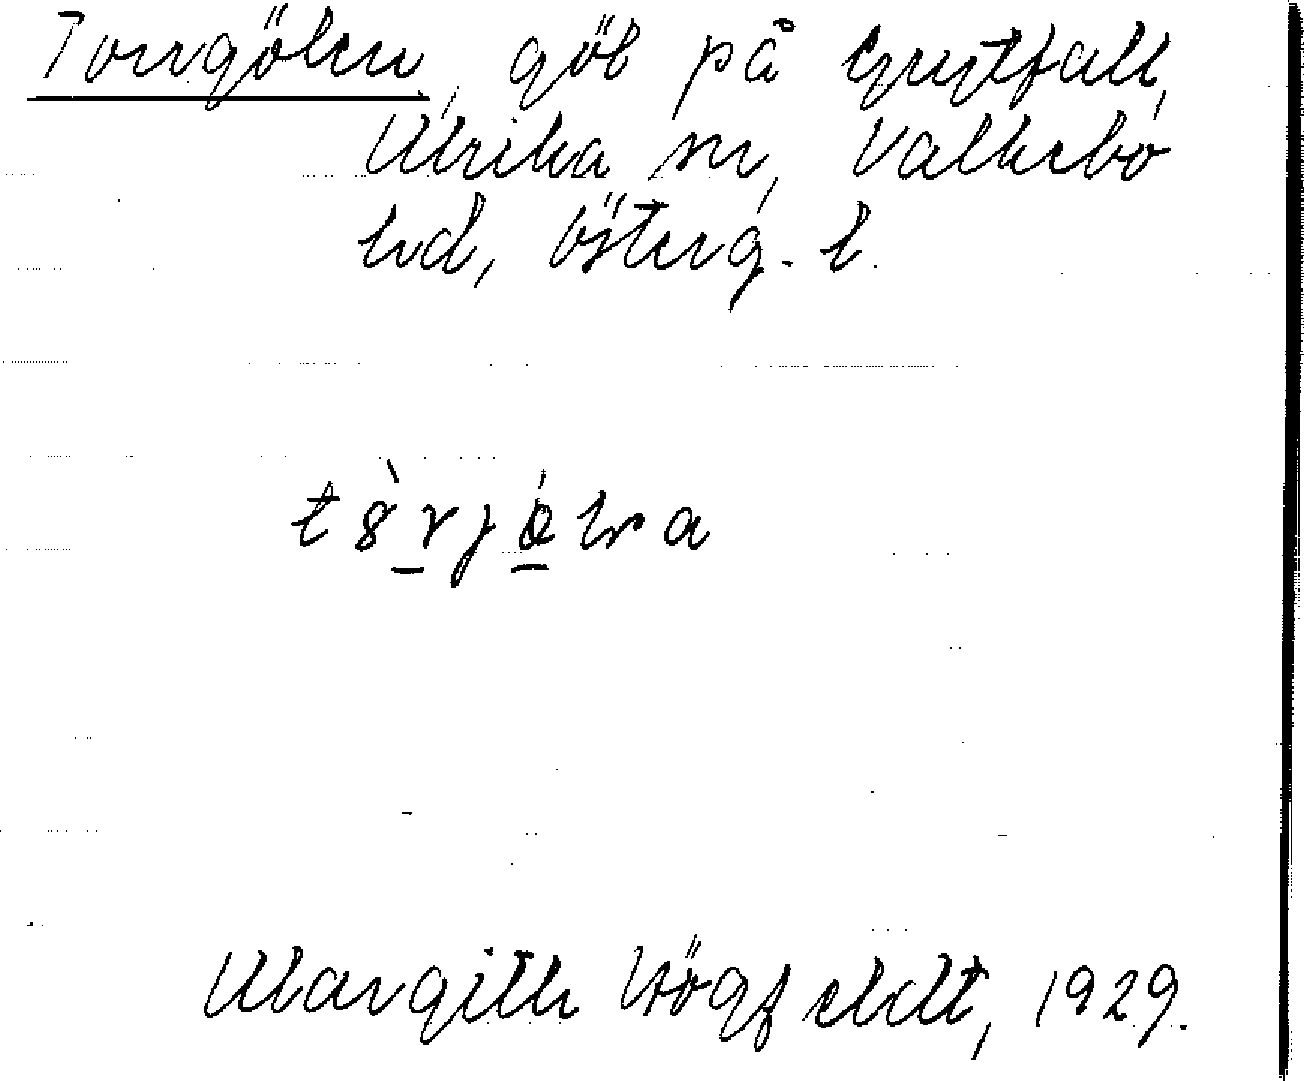 Torrgölen, göl på Grytfall,
Ulrika sn, Valkebo
hd, Österg. l.
Margith Högfeldt, 1929.